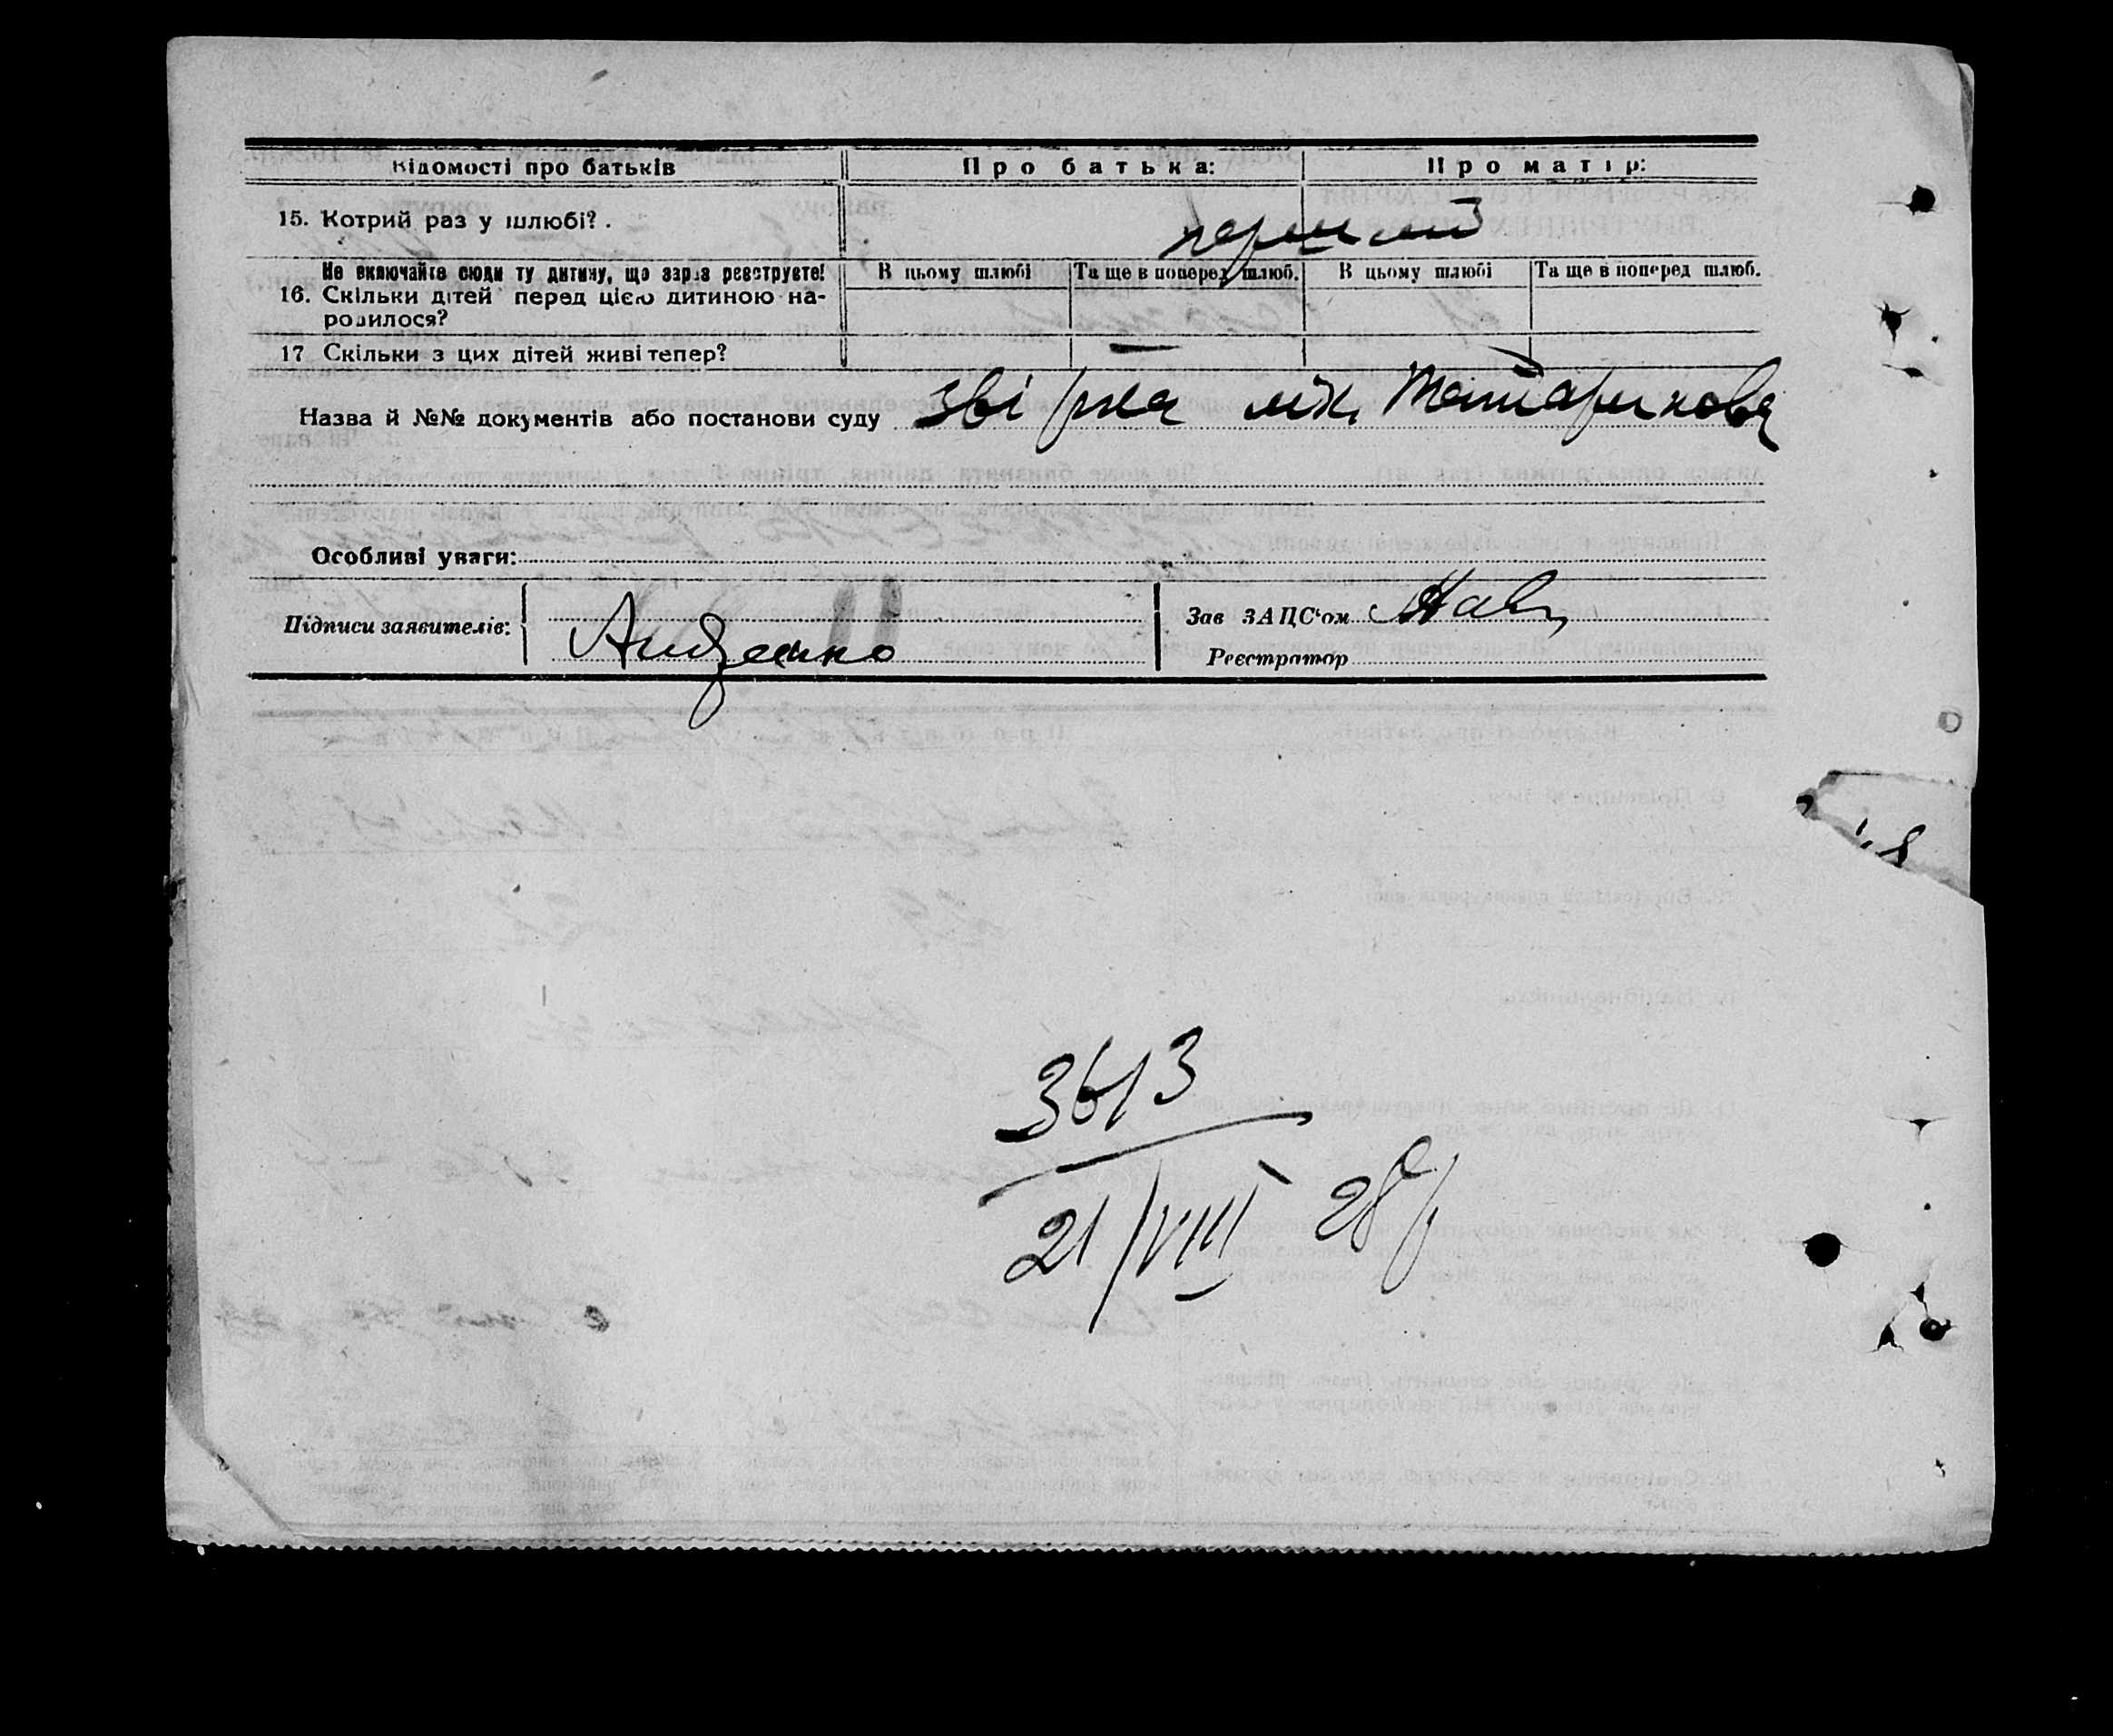 Відомості про батьків Про батька: Про матір:
15. Котрий раз у шлюбі? . перший
Не включайте сюди ту дитину, що зараз реєструєте! В цьому шлюбі Та ще в поперед шлюб. В цьому шлюбі Та ще в поперед шлюб.
16. Скільки дітей перед цією дитиною на-
родилося?
17 Скільки з цих дітей живі тепер? —
Назва й №№ документів або постанови суду
Особливі уваги:
Підписи заявителів:
Зав ЗАЦС‘ом
Реєстратор
3613
21/VIII 28 р